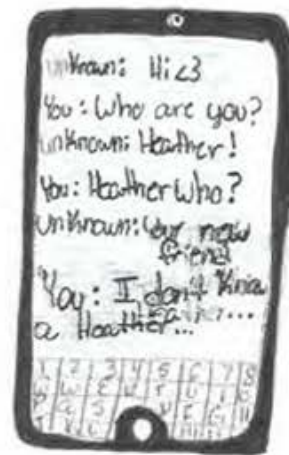 unknown: Hi<3
You: Who are you?
unknown: Heather!
You: Heather Who?
unknown: your new
friend
You: I don't Know
a Heather...
1 2 3 4 5 6 7 8